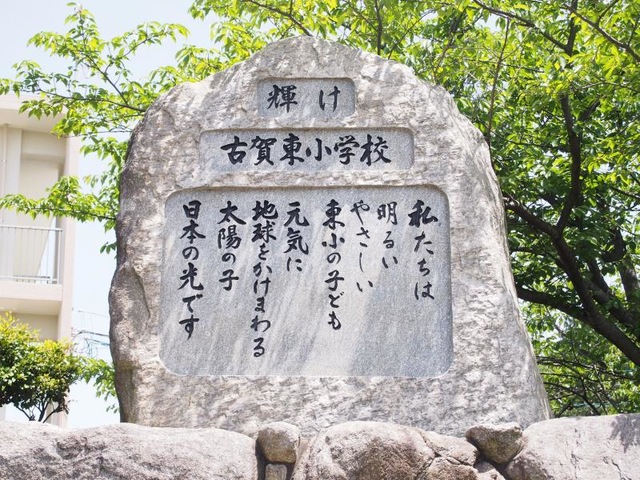 輝け
古賀東小学校
私たちは
明るい
やさしい
東小の子ども
元気に
地球をかけまわる
太陽の子
日本の光です